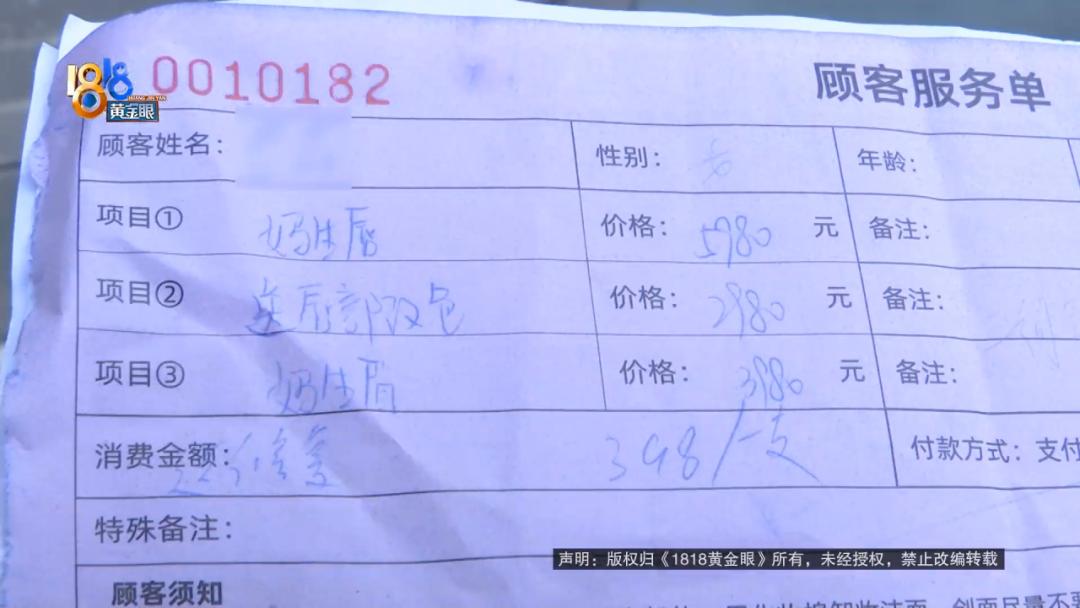 1818
HUANG JIN YAN
黄金眼
0010182
顾客服务单
顾客姓名： 性别：女 年龄：
项目① 妈生唇 价格：5980 元 备注：
项目② 送唇部改色 价格：2980 元 备注：
项目③ 妈生眉 价格：3980 元 备注：
消费金额： 398/一支 付款方式：支付
特殊备注：
声明：版权归《1818黄金眼》所有，未经授权，禁止改编转载
顾客须知